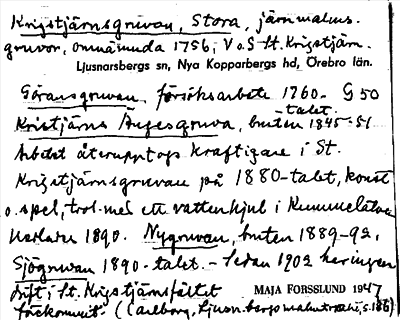 Krigstjärnsgruvan, Stora, järnmalms-
gruvor, omnämnda 1756, V o. S St. Krigstjärn.
Ljusnarsbergs sn, Nya Kopparbergs hd, Örebro län.
Göransgruvan, försöksarbete 1760- G 50
talet.
Kristjärns Ångesgruva, bruten 1845-51
Arbetet återupptogs kraftigare i St.
Krigstjärnsgruvan på 1880-talet, konst
o. spel, trol. med ett vattenhjul i
nedan 1890. Nygruvan, bruten 1889-92,
Sjögruvan 1890-talet. - Sedan 1902 har ingen
drift i St. Krigstjärnsfältet
MAJA FORSSLUND 1947
förekommit. (Carlborg, Ljusn.bergs malmtrakt, s. 186)